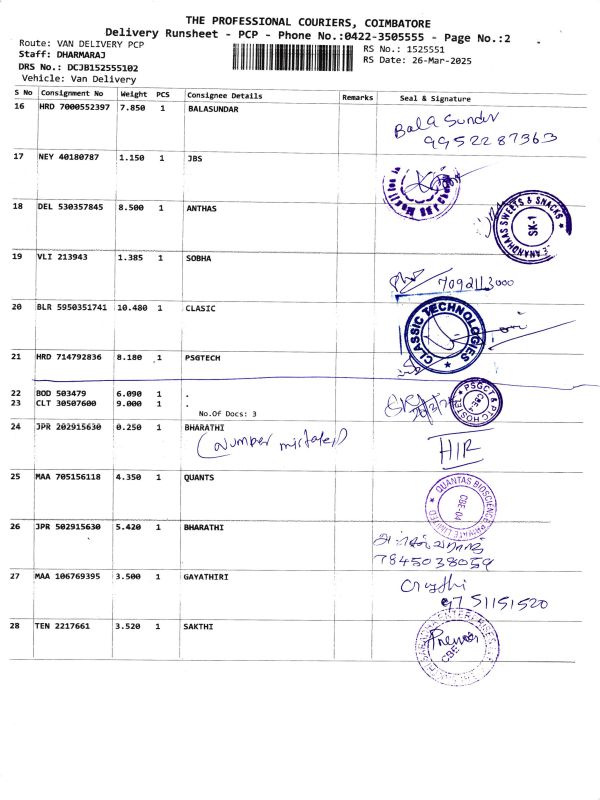 THE PROFESSIONAL COURIERS, COIMBATORE
Delivery Runsheet - PCP - Phone No.:0422-3505555 - Page No.:2
Route: VAN DELIVERY PCP
RS No.: 1525551
Staff: DHARMARAJ
RS Date: 26-Mar-2025
DRS No.: DCJB152555102
Vehicle: Van Delivery
S No Consignment No Weight PCS Consignee Details Remarks Seal & Signature
16 HRD 7000552397 7.850 1 BALASUNDAR
Bala Sunder
9952287363
17 NEY 40180787 1.150 1 JBS
18 DEL 530357845 8.500 1 ANTHAS
ANANDHAAS SWEETS & SNACKS
SK-1
19 VLI 213943 1.385 1 SOBHA
7092113000
20 BLR 5950351741 10.480 1 CLASIC
CLASSIC TECHNOLOGIES
21 HRD 714792836 8.180 1 PSGTECH
22 BOD 503479 6.090 1 .
23 CLT 30507600 9.000 1 .
No.Of Docs: 3
PSGCT & PTC HOSTEL
24 JPR 202915630 0.250 1 BHARATHI
(Number mistake)
H/R
25 MAA 705156118 4.350 1 QUANTS
QUANTAS BIOSCIENCE PRIVATE LIMITED
CBE-04
26 JPR 502915630 5.420 1 BHARATHI
7845038059
27 MAA 106769395 3.500 1 GAYATHIRI
9751151520
28 TEN 2217661 3.520 1 SAKTHI
CBE